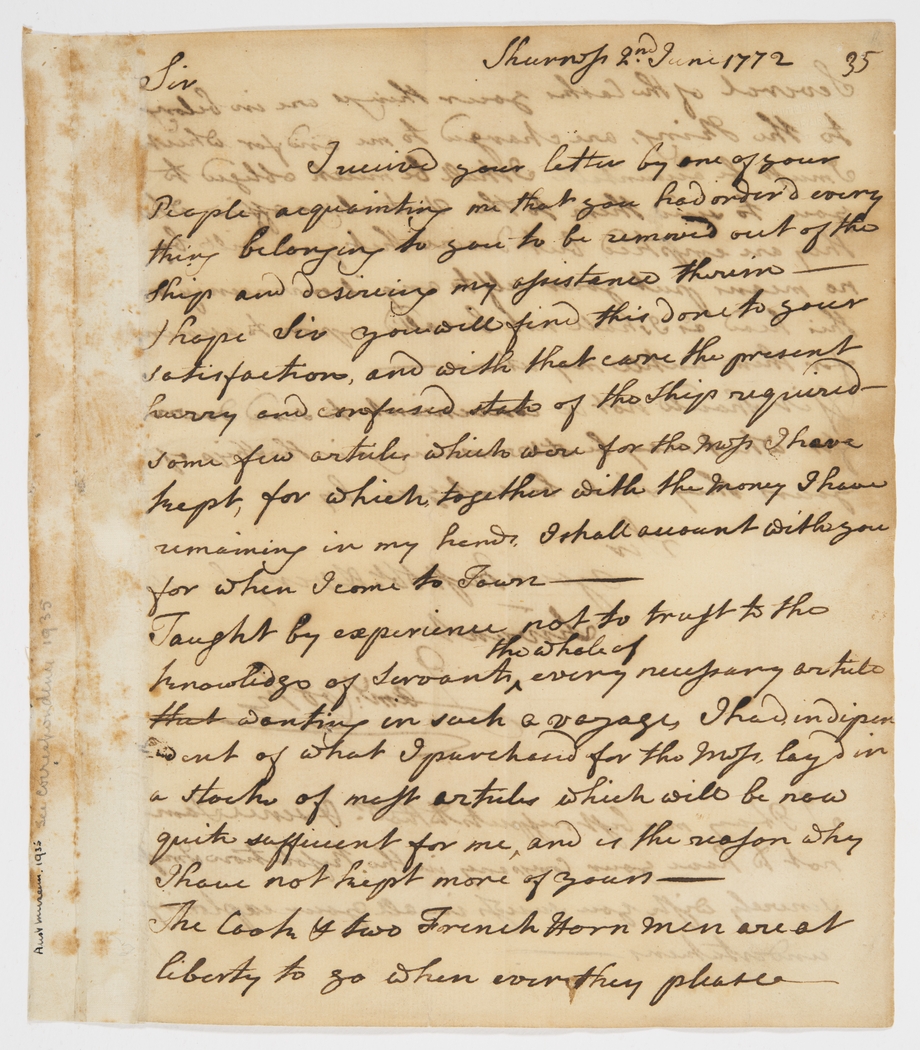 Sheerness 2nd June 1772 35
Sir
I recived your letter by one of your
People acquainting me that you had order'd every
thing belonging to you to be removed out of the
Ship and desireing my assistance therein —
I hope Sir you will find this done to your
satisfaction, and with that care the present
hurry and confused state of the Ship required—
some few articles which were for the Mess I have
kept, for which together with the Money I have
remaining in my hands. I shall account with you
for when I come to Town —
Taught by experience not to trust to the
the whole of
knowlidge of Servants ^ every necessary article
that wanting in such a voyage, I had indipen
dent of what I purchased for the Mess, lay'd in
a stock of most articles which will be now
quite sufficient for me, and is the reason why
I have not kept more of yours —
The Cook & two French Horn men are at
liberty to go when ever they please —
Aust Museum, 1935
see correspondence 1935